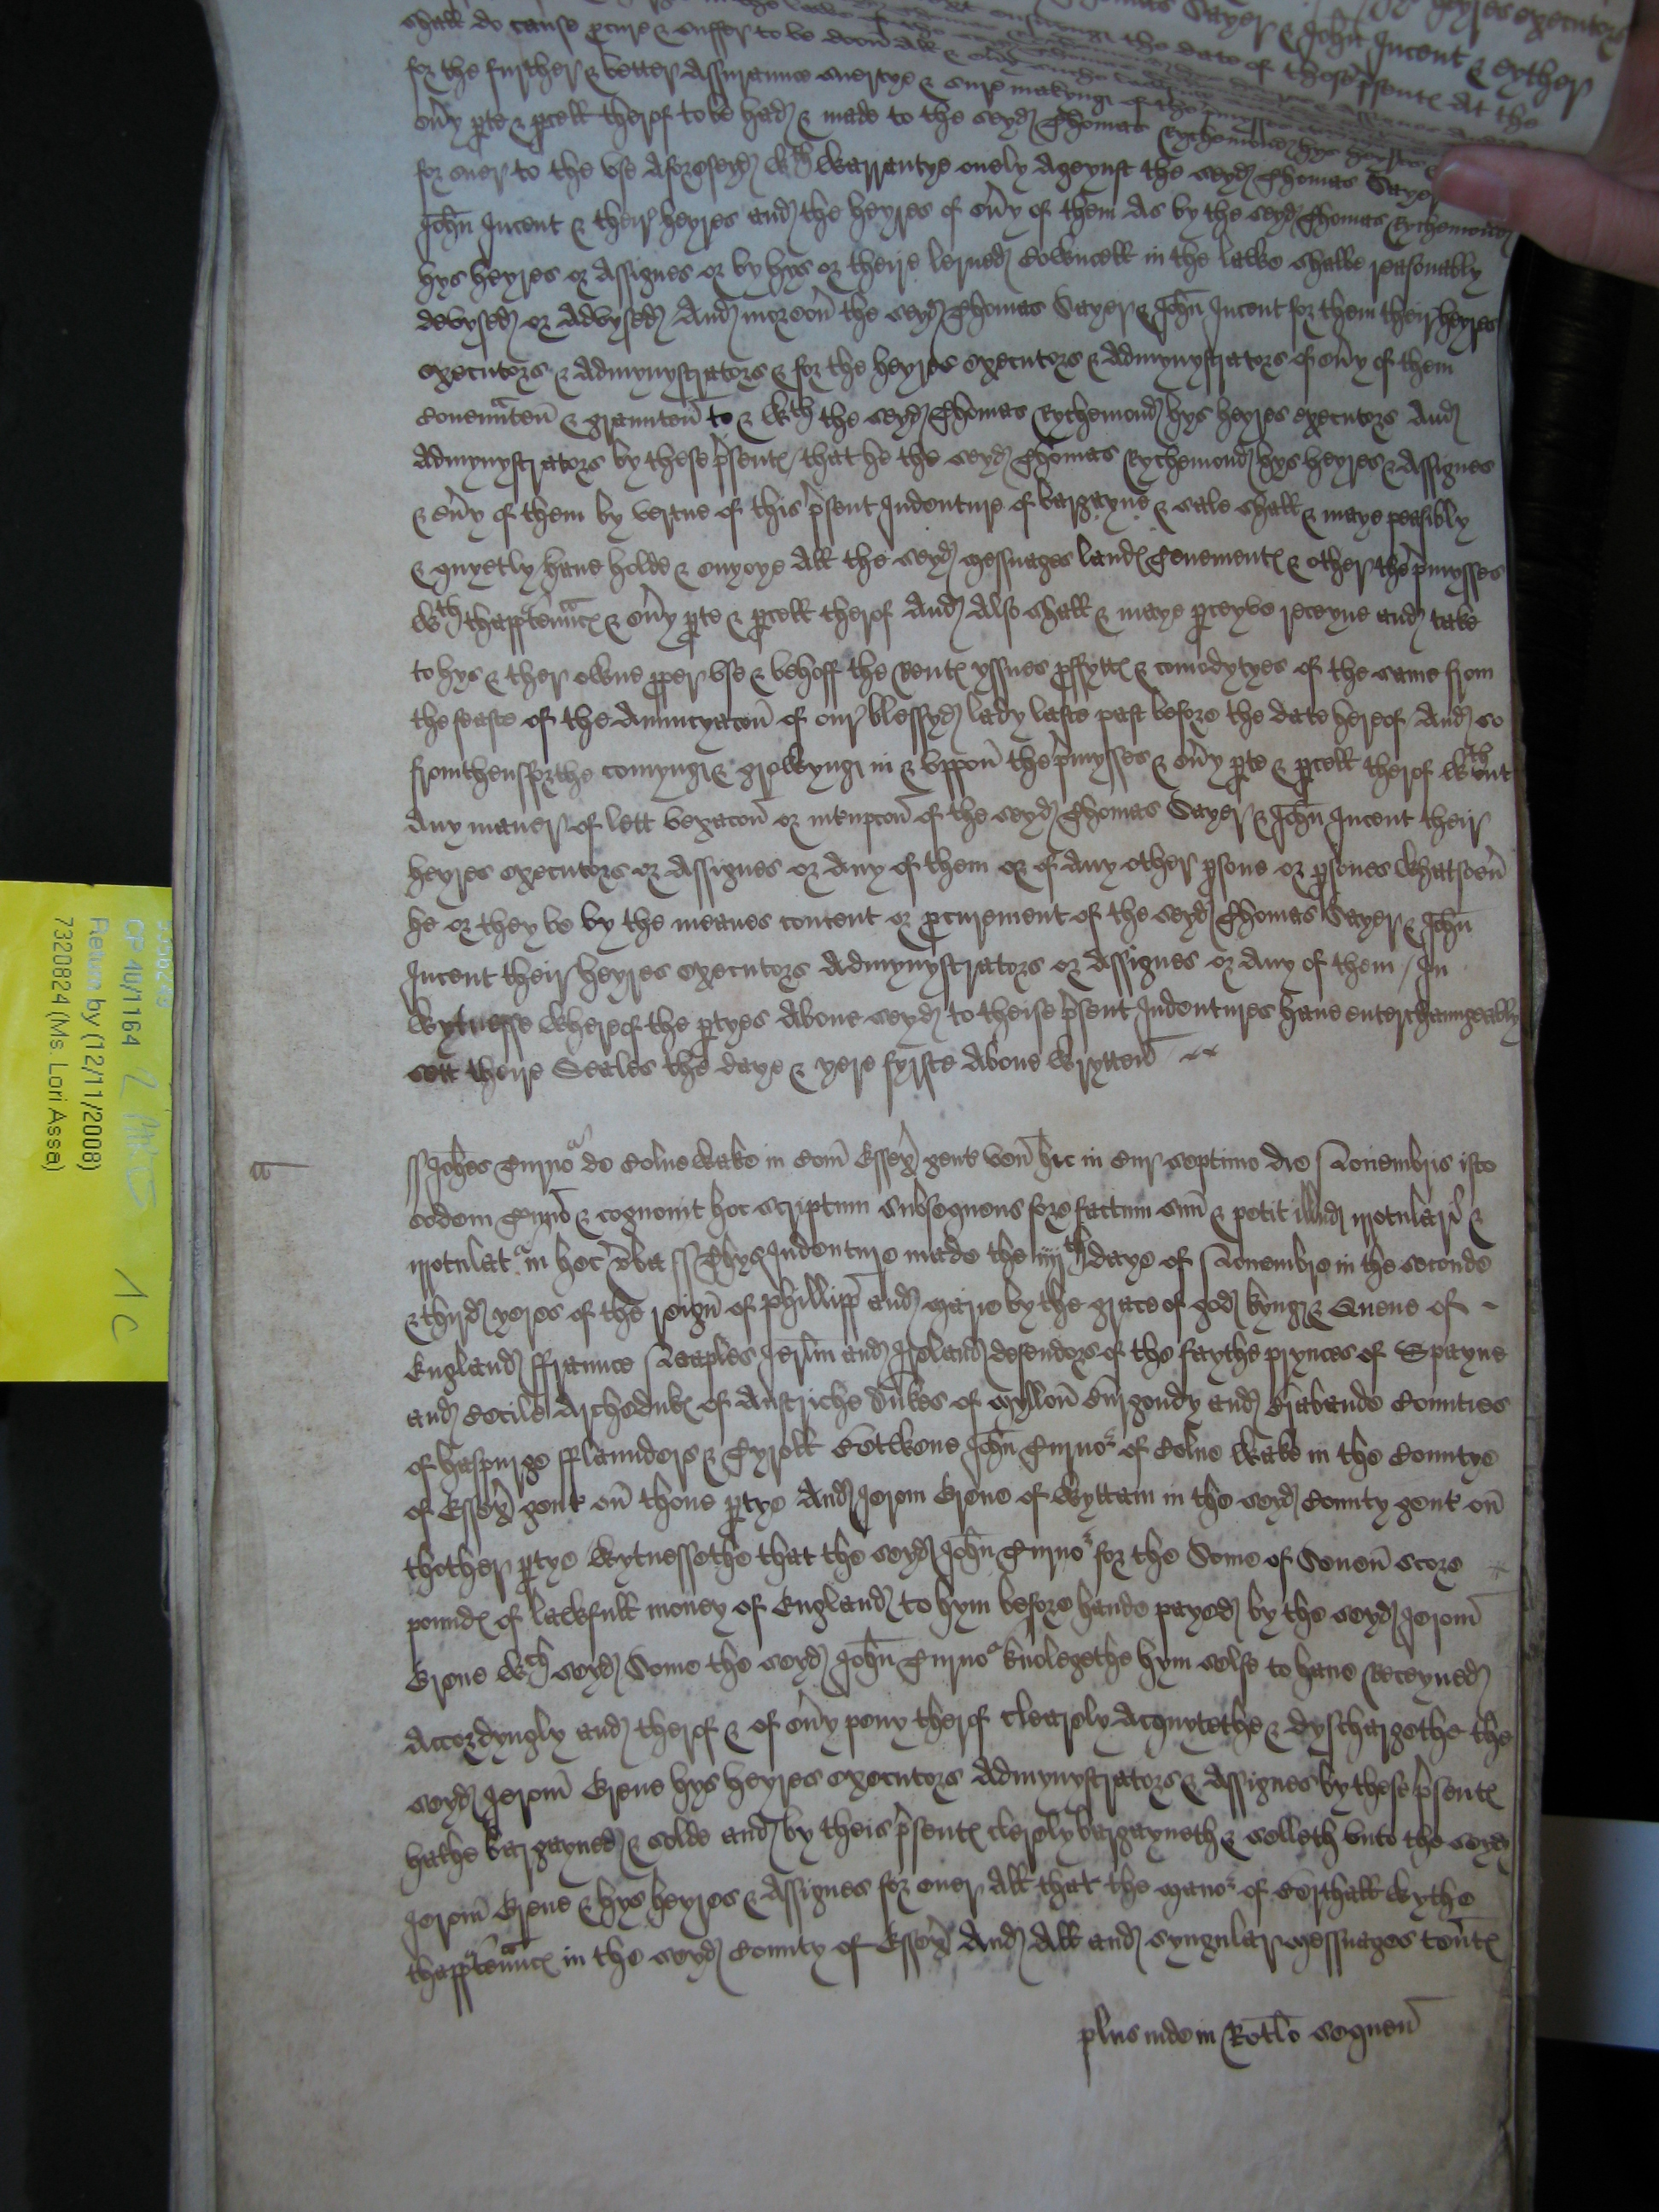 Thomas Sayer & John Incent heyres executors
the date of these p'sent At the & eyther
shall do cause p'cure & suffer to be doon all &
for the further & better Assurannce suertye & sure makyng of the
ev'y p'te & p'cell therof to be had & made to the seyd Thomas Rychemond hys heyres
for euer to the vse Aforeseyd wth warrantye onely Ageynst the seyd Thomas Sayer
John Incent & their heyres and the heyres of ev'y of them As by the seyd Thomas Rychemond
hys heyres or Assignes or by hys or theire lerned Cowncell in the lawe shalbe reasonably
devysed or Advysed And moreou' the seyd Thomas Sayer & John Incent for them their heyres
executors & Admynystrators & for the heyres executors & Admynystrators of ev'y of them
Couenaten & graunten to & wth the seyd Thomas Rychemond hys heyres executors And
Admynystrators by these p'sent / that he the seyd Thomas Rychemond hys heyres & Assignes
& eu'y of them by vertue of this p'sent Indenture of bargayne & sale shall & maye peasibly
& quyetly haue holde & enyoye All the seyd messuages land Tenement & other the p'mysses
wth thapp'tennc & ev'y p'te & p'cell therof And Also shall & maye p'ceyve receyue and take
to hys & ther owne p'per vse & behoff the Rent yssues p'ffytt & comodytyes of the same from
the feaste of the Annucyacon of our blessyd lady laste past before the date hereof / And so
fromthensforthe comyng & growyng in & vppon the p'mysses & ev'y p'te & p'cell therof wthout
Any maner of lett vexacon or int'rupcon of the seyd Thomas Sayer & John Incent their
heyres executors or Assignes or Any of them or of Any other p'sone or p'sones whatsoeu'
he or they be by the meanes content or p'curement of the seyd Thomas Sayer & John
Incent their heyres executors Admynystrators or Assignes or Any of them / In
wytnesse whereof the p'tyes Aboue seyd to theise p'sent Indentures haue enterchaungeably
sett theire Seales the daye & yere fyrste Aboue wrytten
ss Joh'es Turno' de Colne wake in Com' Essex' gent ven' hic in Cur septimo die Novembris isto
eodem T'mino & cognouit hoc scriptum subsequens fore factum suu' & petit illud irrotulari &
irrotulat' in hec v'ba ss Thys Indenture made the iiijth daye of Novembre in the seconde
& thyrd yeres of the reign of Phillipp and Marie by the grace of god kyng & Quene of
England ffraunce Neaples Jerlm and Ireland defendors of the faythe prynces of Spayne
and Cecile Archeduk of Austriche dukes of Myllon Burgondy and Brabande Counties
of haspurge fflaunders & Tyroll Betwene John Turnor of Colne wake in the Countye
of Essex gent on thone p'tye And Jerom Grene of wyttam in the seyd County gent on
thother p'tye wytnessethe that the seyd John Turnor for the Some of Seuen score
pound of lawfull money of England to hym before hande payed by the seyd Jerom
Grene wch seyd Some the seyd John Turnor knolegethe hym selfe to haue Receyued
Accordyngly and therof & of ev'y peny therof clearely Acquytethe & dyschargethe the
seyd Jerom Grene hys heyres executors Admynystrators & Assignes by these p'sent
hathe bargayned & solde and by theis p'sent clerely bargayneth & selleth vnto the seyd
Jerom Grene & hys heyres & Assignes for euer All that the Manor of wythe
thapp'tennc in the seyd County of Essex And All and synguler messuages ten't
plus inde in Rotlo sequen'
CP 40/1164
Return by (12/11/2008)
7320824 (Ms. Lori Assa)
1 C